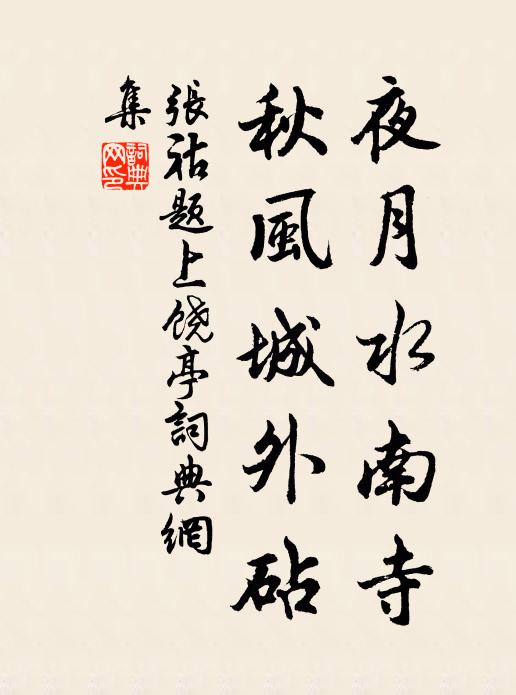 夜月水南寺
秋風城外砧
張祜題上饒亭詞典網
集
詞典網印